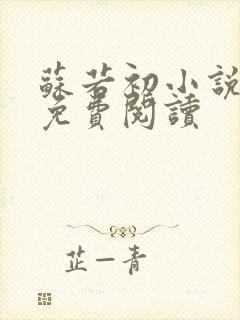 蘇若初小說
免費閱讀
芷一青